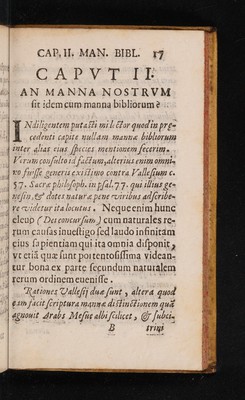 CAP. II. MAN. BIBL. 17
CAPVT II.
AN MANNA NOSTRVM
sit idem cum manna bibliorum?
INdiligentem putasti mi lector quod in prę-
cedenti capite nullam mannæ bibliorum
inter alias eius species mentionem fecerim.
Verum consulto id factum, alterius enim omni-
no fuisse generis existimo contra Vallesium c.
57. Sacræ philosoph. in psal. 77. qui illius ge-
nesin, & dotes naturæ pene viribus adscribe-
re videtur ita locutus. Neque enim hunc
eleup (Deum cursum) cum naturales re-
rum causas inuestigo sed laudo infinitam
eius sapientiam qui ita omnia disponit,
vt etiã quæ sunt portentosissima videan-
tur bona ex parte secundum naturalem
rerum ordinem euenisse.
Rationes Vallesij duæ sunt, altera quod
eam facit scriptura mannæ distinctionem quã
agnouit Arabs Mesue albi scilicet, & subci-
B trini